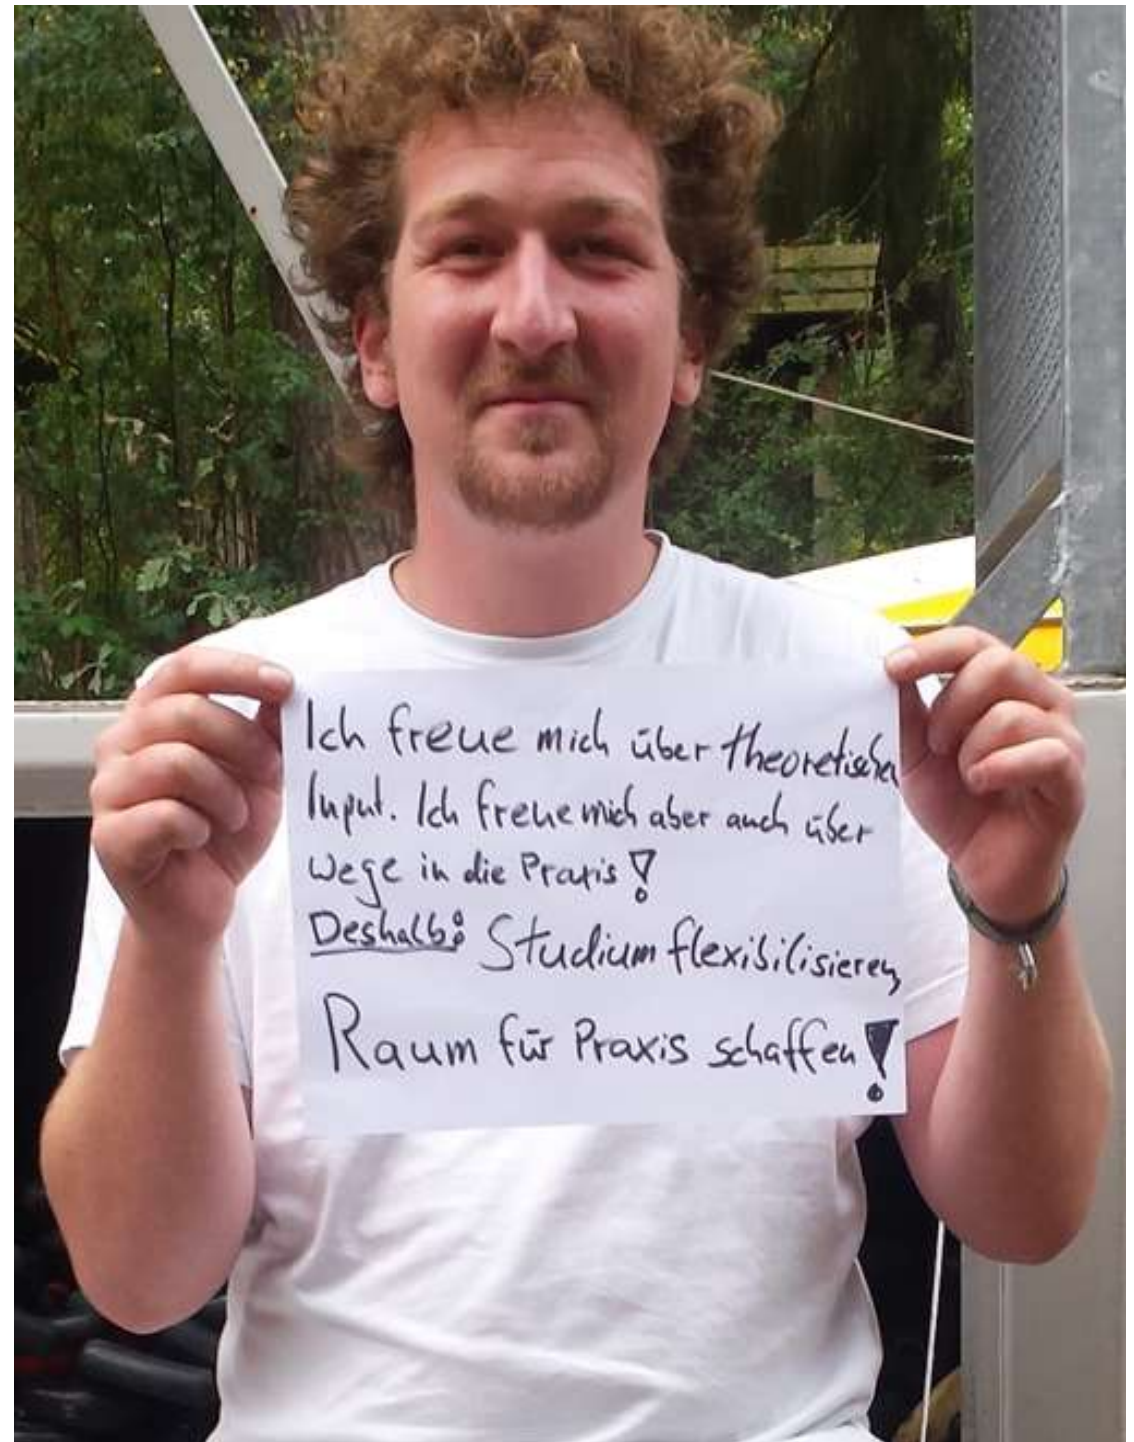 Ich freue mich über theoretischen
Input. Ich freue mich aber auch über
Wege in die Praxis!
Deshalb: Studium flexibilisieren,
Raum für Praxis schaffen!